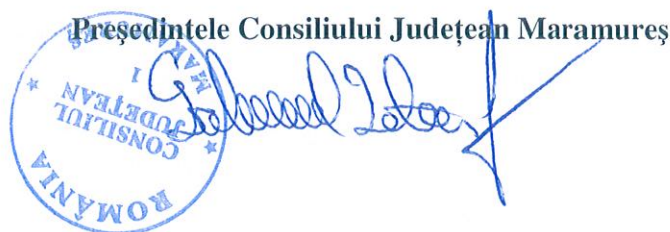 Președintele Consiliului Județean Maramureș
ROMÂNIA
CONSILIUL
JUDEȚEAN
1